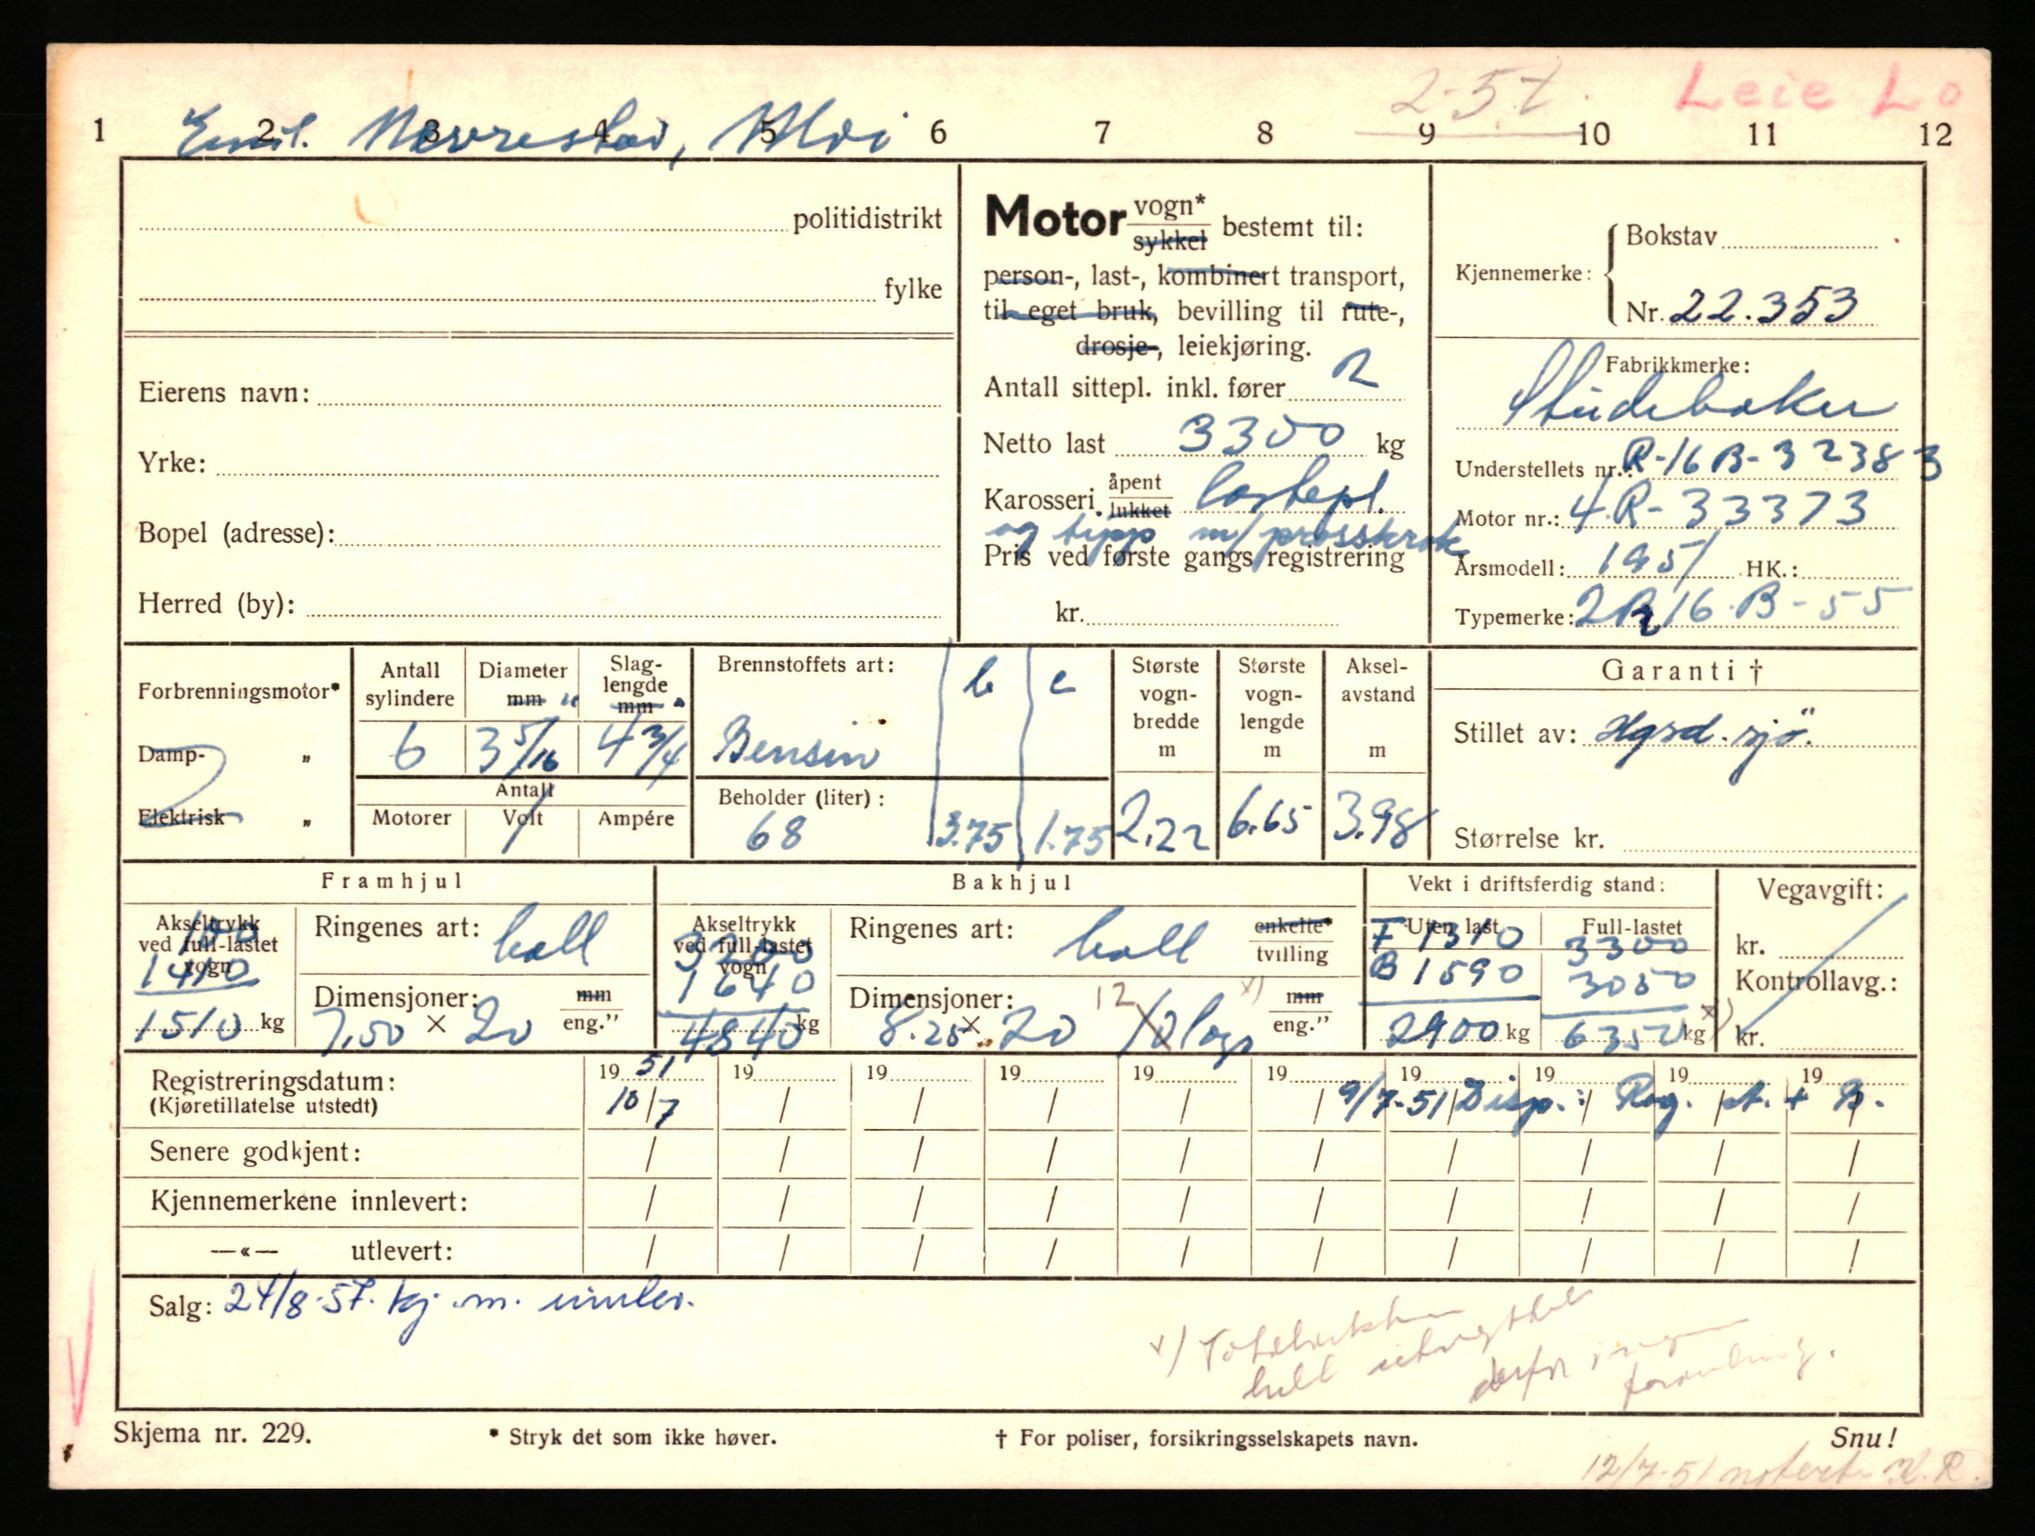 2-57. Leie Lo
1 2 3 4 5 6 7 8 9 10 11 12
Emil Nevrestad, Moi
politidistrikt
fylke
Eierens navn:
Yrke:
Bopel (adresse):
Herred (by):
Motor vogn* sykkel bestemt til:
person-, last-, kombinert transport,
til eget bruk, bevilling til rute-,
drosje-, leiekjøring.
Antall sittepl. inkl. fører 2
Netto last 3300 kg
Karosseri åpent lukket lastepl.
og tipp m/
Pris ved første gangs registrering
kr.
Kjennemerke: Bokstav
Nr. 22.353
Fabrikkmerke:
Studebaker
Understellets nr.: R-16B-32383
Motor nr.: 4.R-33373
Årsmodell: 1951 HK.:
Typemerke: 2R16.B-55
Forbrenningsmotor*
Damp- "
Elektrisk "
Antall sylindere 6
Diameter mm " 3 5/16
Slaglengde mm " 4 3/4
Antall
Motorer Volt Ampére
Brennstoffets art: b c
Bensin
Beholder (liter):
68 3.75 1.75
Største vognbredde m 2.22
Største vognlengde m 6.65
Akselavstand m 3.98
Garanti †
Stillet av: Hgsd. sjö.
Størrelse kr.
Framhjul
Akseltrykk ved full-lastet vogn
100
1410
1510 kg
Ringenes art: ball
Dimensjoner: mm eng."
7.50 × 20
Bakhjul
Akseltrykk ved full-lastet vogn
3200
1640
4840 kg
Ringenes art: ball enkelte* tvilling
Dimensjoner: 12 x) mm eng."
8.25 × 20 10 lags
Vekt i driftsferdig stand:
Uten last Full-lastet
F 1310 3300
B 1590 3050
2900 kg 6350 kg x)
Vegavgift:
kr.
Kontrollavg.:
kr.
Registreringsdatum: 19 51 19 19 19 19 19 19 19 19 19
(Kjøretillatelse utstedt) 10/7 / / / / / 9/7-51 Disp.: Reg. st. + B.
Senere godkjent: / / / / / / / / / /
Kjennemerkene innlevert: / / / / / / / / / /
—«— utlevert: / / / / / / / / / /
Salg: 24/8-57. kj.m. innlev.
x)
helt
derfor ingen
forandring.
Skjema nr. 229. * Stryk det som ikke høver. † For poliser, forsikringsselskapets navn. Snu!
12/7-51 notert K.R.